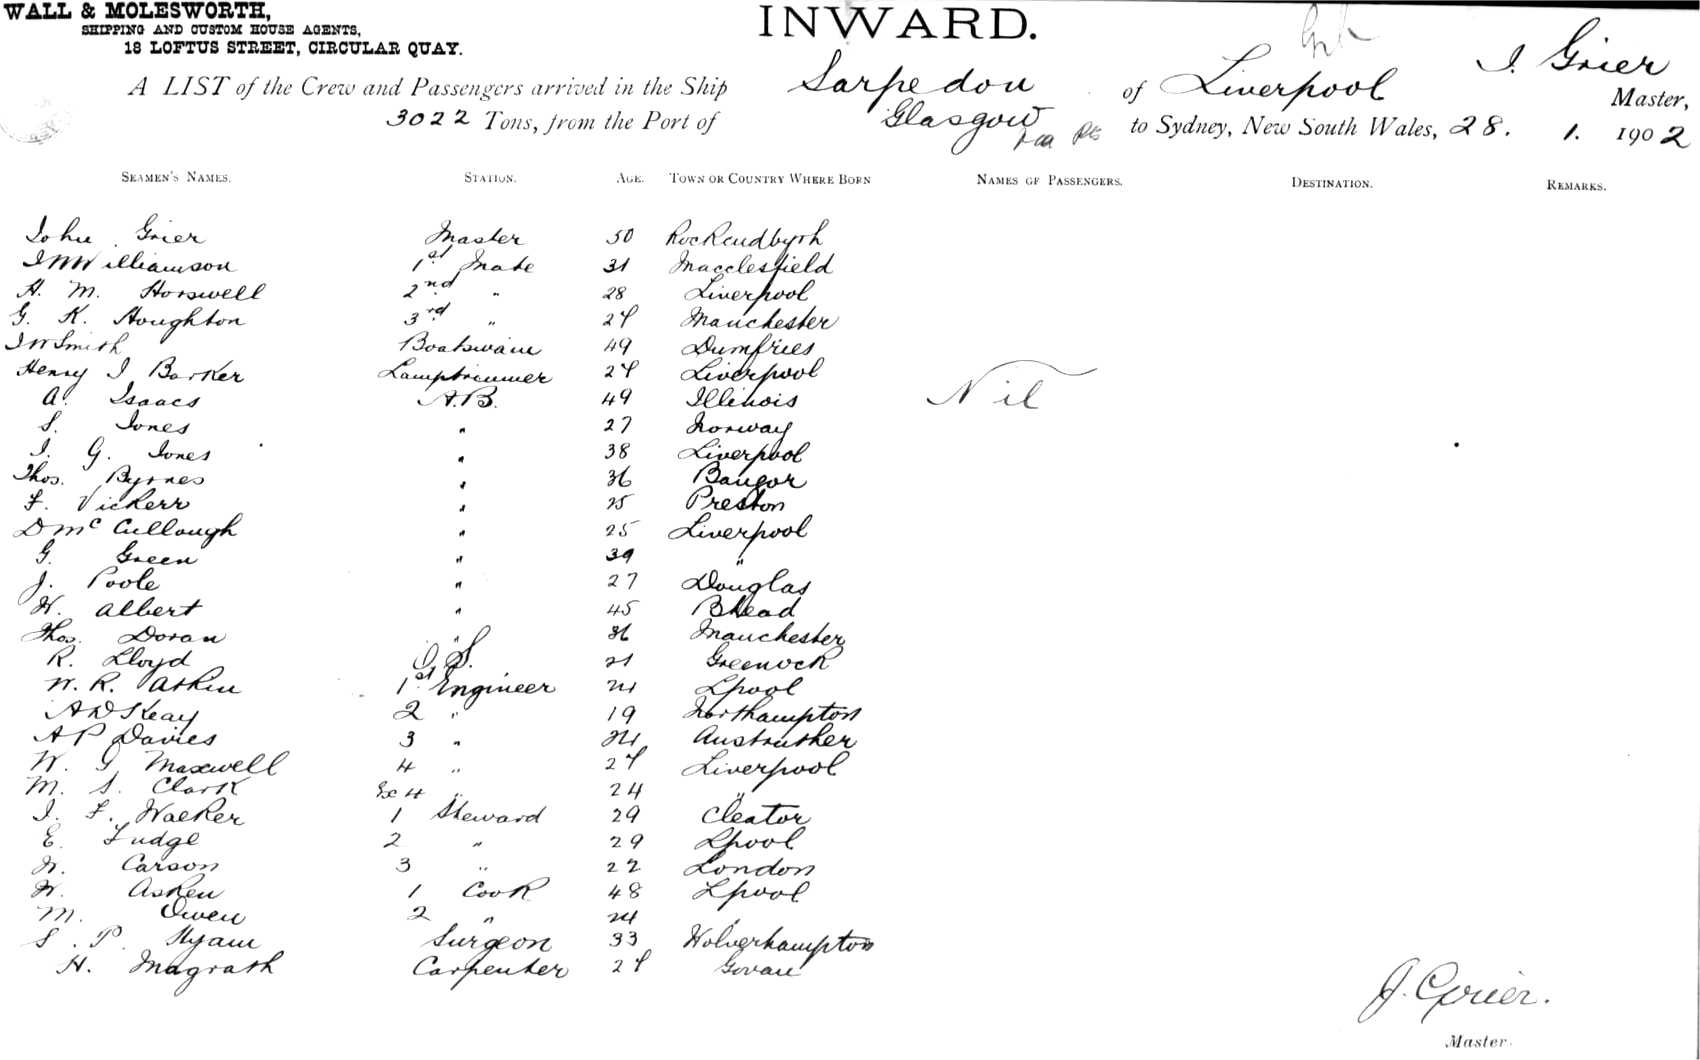 WALL & MOLESWORTH,
SHIPPING AND CUSTOM HOUSE AGENTS,
18 LOFTUS STREET, CIRCULAR QUAY.
INWARD.
A LIST of the Crew and Passengers arrived in the Ship Sarpedon of Liverpool J. Grier Master,
3022 Tons, from the Port of Glasgow via to Sydney, New South Wales, 28. 1. 1902
SEAMEN'S NAMES. STATION. AGE. TOWN OR COUNTRY WHERE BORN NAMES OF PASSENGERS. DESTINATION. REMARKS.
John Grier Master 50
J W Williamson 1st Mate 31 Macclesfield
H. M. Horswell 2nd " 28 Liverpool
G. K. Houghton 3rd " Manchester
J W Smith Boatswain 49 Dumfries
Henry J Barker Lamptrimmer Liverpool
A. Isaacs A.B. 49 Illinois Nil
S. Jones " 27 Norway
J. G. Jones " 38 Liverpool
Thos. Byrnes " 36 Bangor
F. Vickerr " 25 Preston
D McCullough " 25 Liverpool
G. Green " 39 "
J. Poole " 27 Douglas
W. Albert " 45 B'head
Thos. Doran " 36 Manchester
R. Lloyd O.S. 21 Greenock
W. R. Askin 1st Engineer Lpool
A D Keay 2 " 19 Northampton
A P Davies 3 " Anstruther
W. J Maxwell 4 " Liverpool
M. S. Clark Ex 4 " 24 "
J. F. Walker 1 Steward 29 Cleator
E. Judge 2 " 29 Lpool
W. Carson 3 " 22 London
W. Asken 1 Cook 48 Lpool
M. Owen 2 " "
S. P. Hyam Surgeon 33 Wolverhampton
H. Magrath Carpenter Govan
J. Grier.
Master.